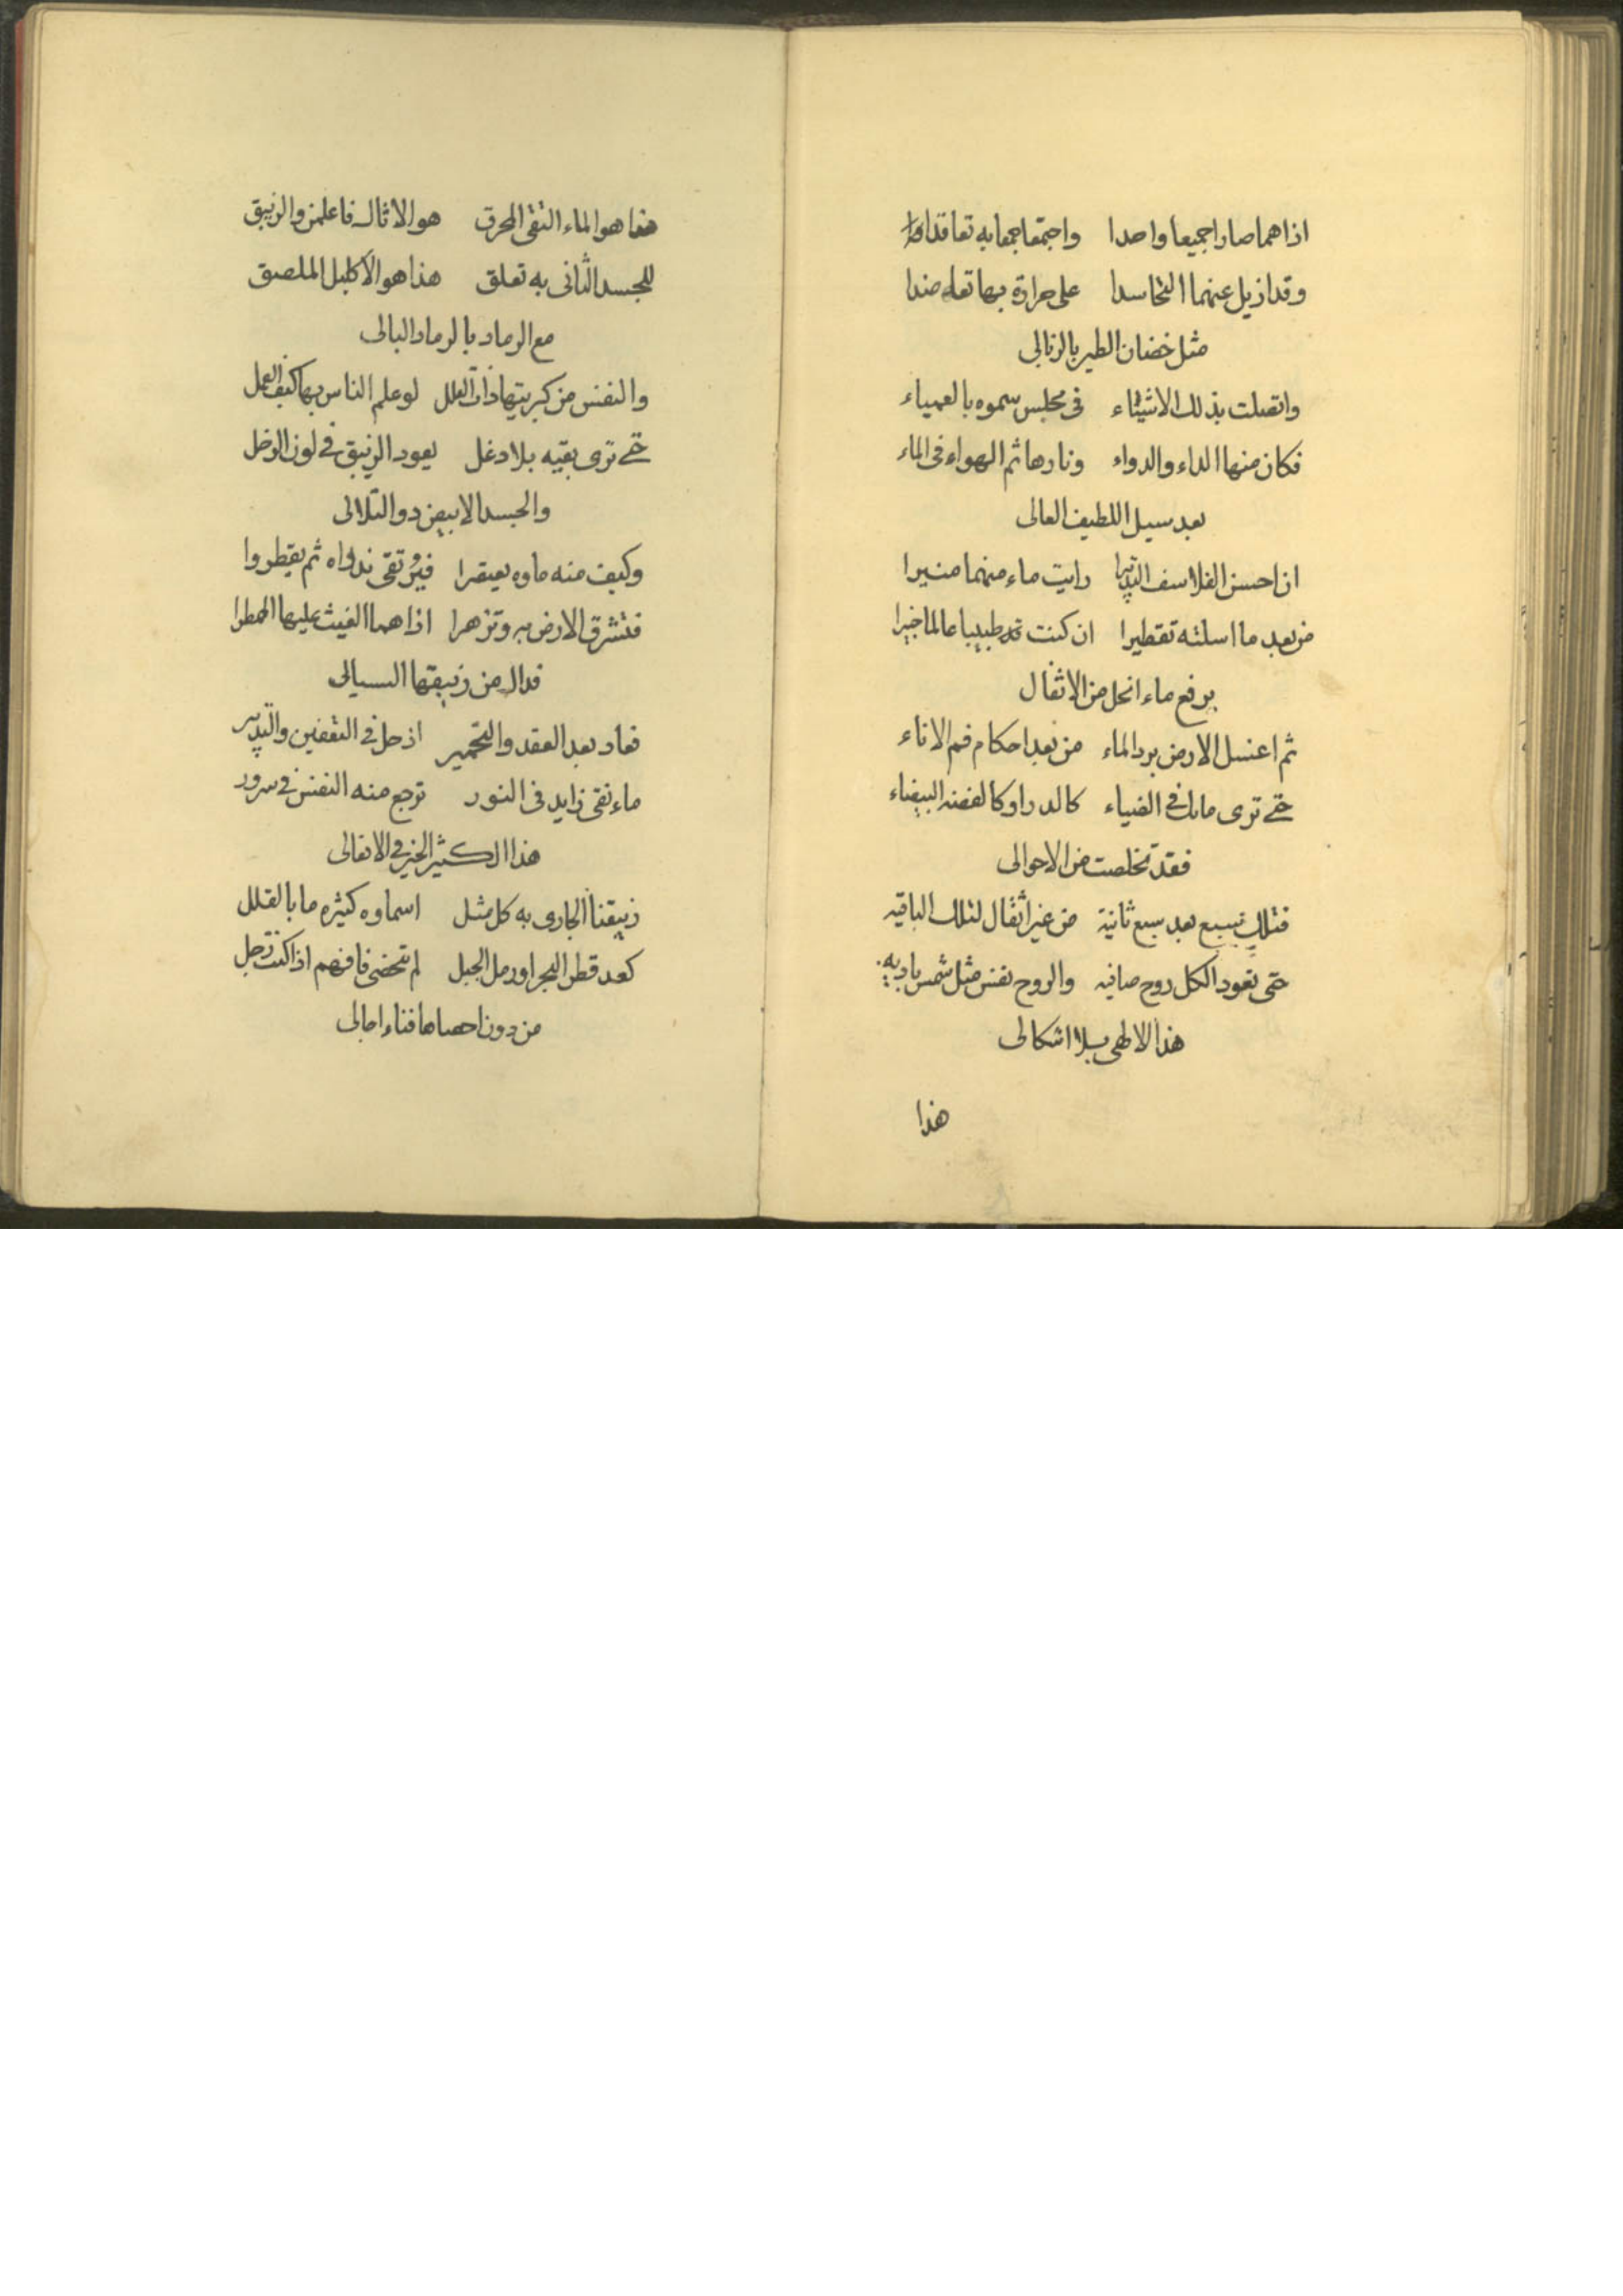 اذا هما صارا جميعا واحدا واجتمعا جمعا به تعاقدا
وقد ازيل عنهما التحاسدا على حرارة بها تعاهدا
مثل حضان الطير بالزبالي
واتصلت بذلك الاشياء في مجلس سموه بالعمياء
فكان منها الداء والدواء ونارها ثم الهواء في الماء
بعد سيل اللطيف العالي
ان احسن الفلاسف التدبيرا رايت ماء منهما منيرا
من بعد ما اسلته تقطيرا ان كنت قد طبيبا عالما خبيرا
برفع ماء انحل من الاثفال
ثم اغسل الارض برد الماء من بعد احكام فم الاناء
حتى ترى ماءك في الضياء كالدر او كالفضة البيضاء
فقد تخلصت من الاحوالي
فتلك تسبيع بعد سبع ثانية من غير اثفال لتلك الباقيه
حتى تعود الكل روح صافيه والروح نفس مثل شمس باديه
هذا الالهي بلا اشكالي
هذا
هذا هو الماء النقي المحرق هو الاثال فاعلمن والزيبق
للجسد الثاني به تعلق هذا هو الاكليل الملصق
مع الرماد بالرماد البالي
والنفس من كبريتها ذات العلل لو علم الناس بها كيف العمل
حتى ترى بقيه بلا دغل يعود الزيبق في لون الرخل
والجسد الابيض ذو التلالي
وكيف منه ماوه يعتصرا فيرتقي نداه ثم يقطروا
فتشرق الارض به وتزهرا اذا هما الغيث عليها امطرا
فدال من زيبقها السيالي
فعاد بعد العقد والتخمير اذ حل في التعفين والتدبير
ماء نقي زايد في النور ترجع منه النفس في سرور
هذا الكثير الخير في الافعالي
زيبقنا الجاري به كل مثل اسماوه كثيره ما بالقلل
كعد قطر البحر او رمل الجبل لم تحصى فافهم اذا كنت رجل
من دون احصاها فناء اجالي